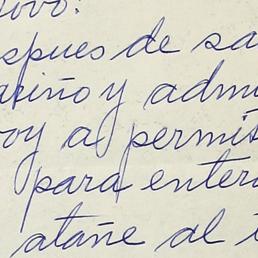 spues de sa
ariño y adm
oy a permit
para enter
atañe al